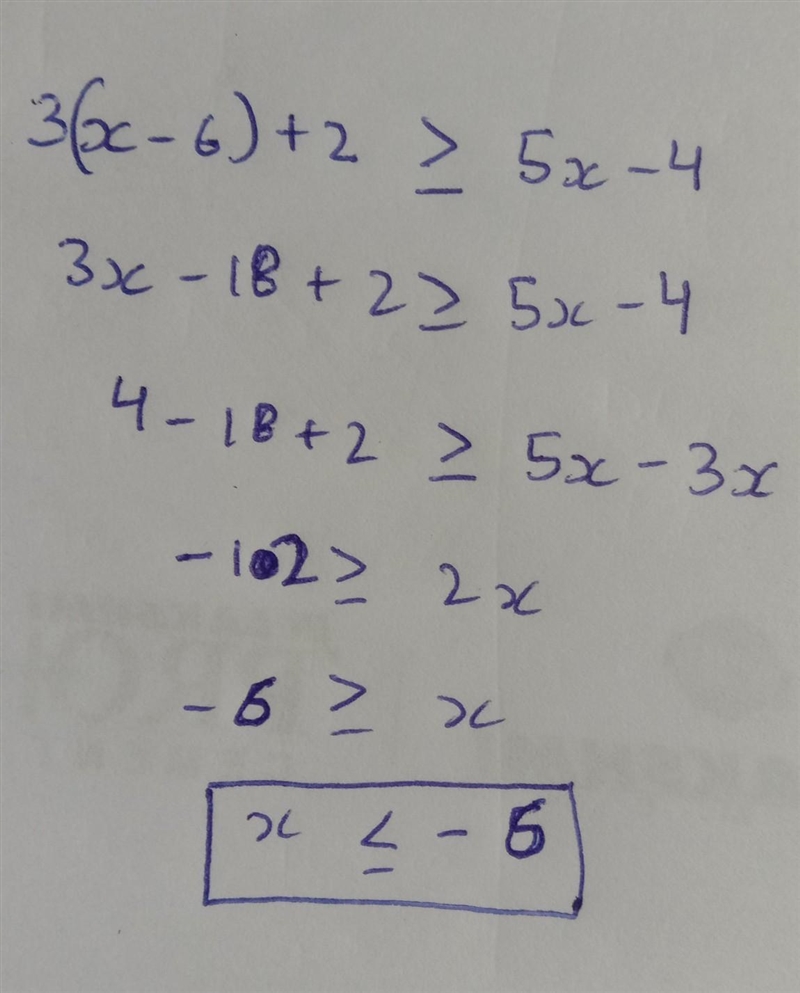 3(x - 6) + 2 ≥ 5x - 4
3x - 18 + 2 ≥ 5x - 4
4 - 18 + 2 ≥ 5x - 3x
-12 ≥ 2x
-6 ≥ x
x ≤ -6